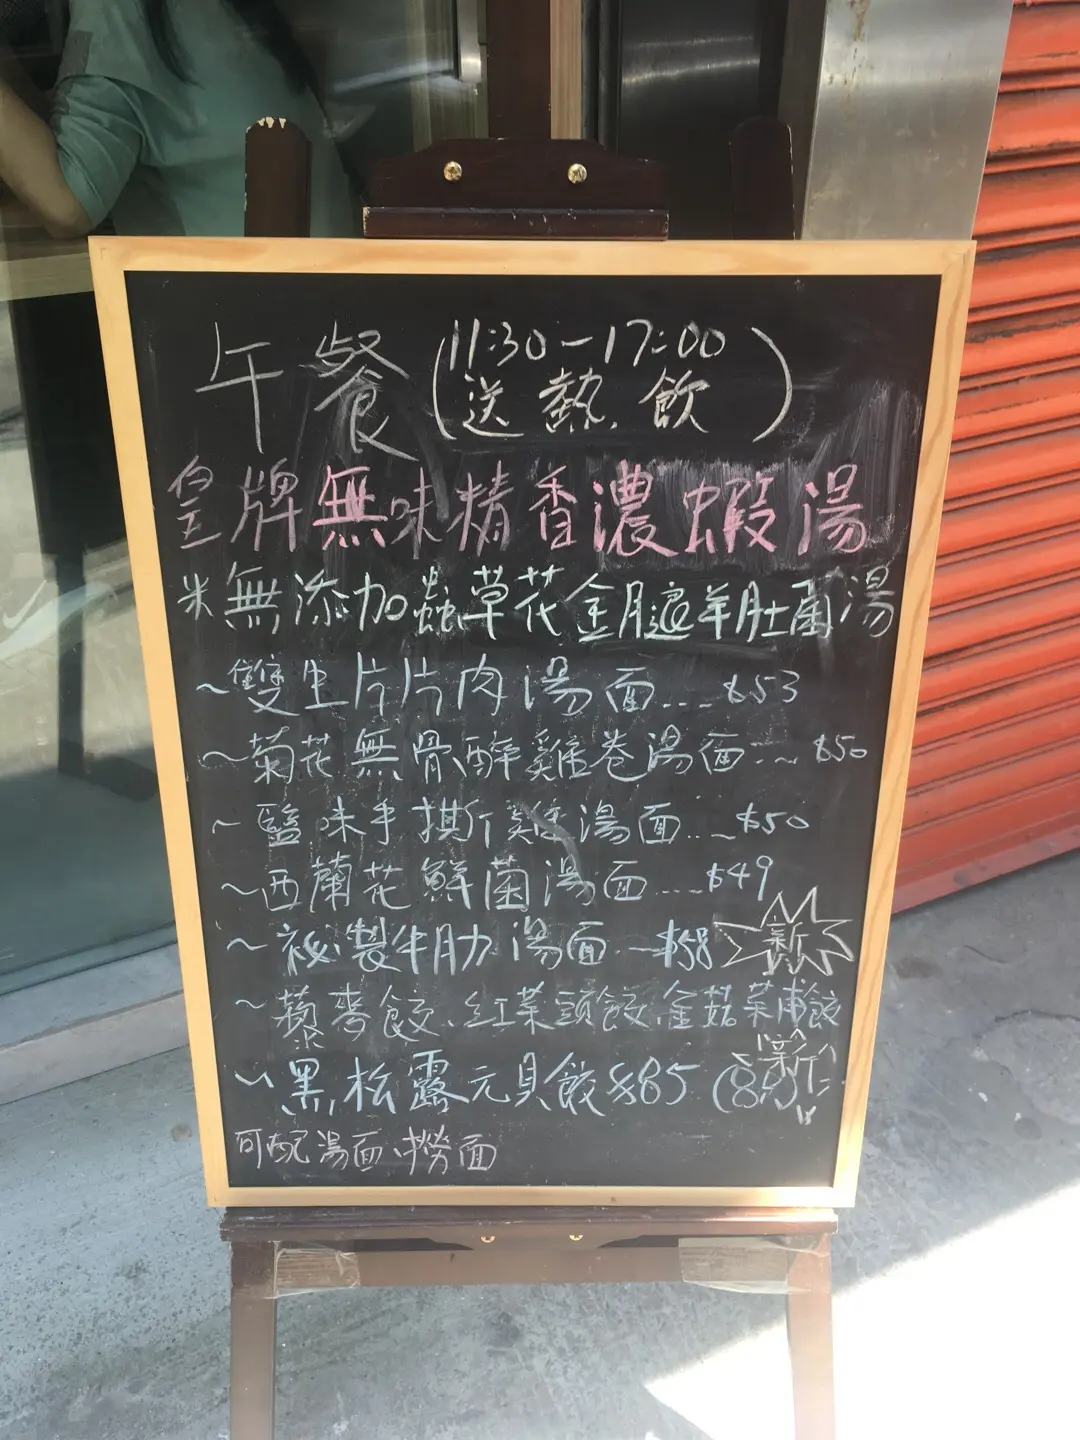 午餐(11:30-17:00
送熱飲)
皇牌無味精香濃蝦湯
米無添加蟲草花金月遠羊肚菌湯
~雙生片片肉湯面....$53
~菊花無骨醉雞卷湯面...~ $50
~鹽味手撕雞湯面..~$50
~西蘭花鮮菌湯面....$49
~祕製牛肋湯面~$58 新
~蘋麥餃.紅菜頭餃.金菇菜甫餃
~黑松露元貝餃$85 新
可配湯面.撈面